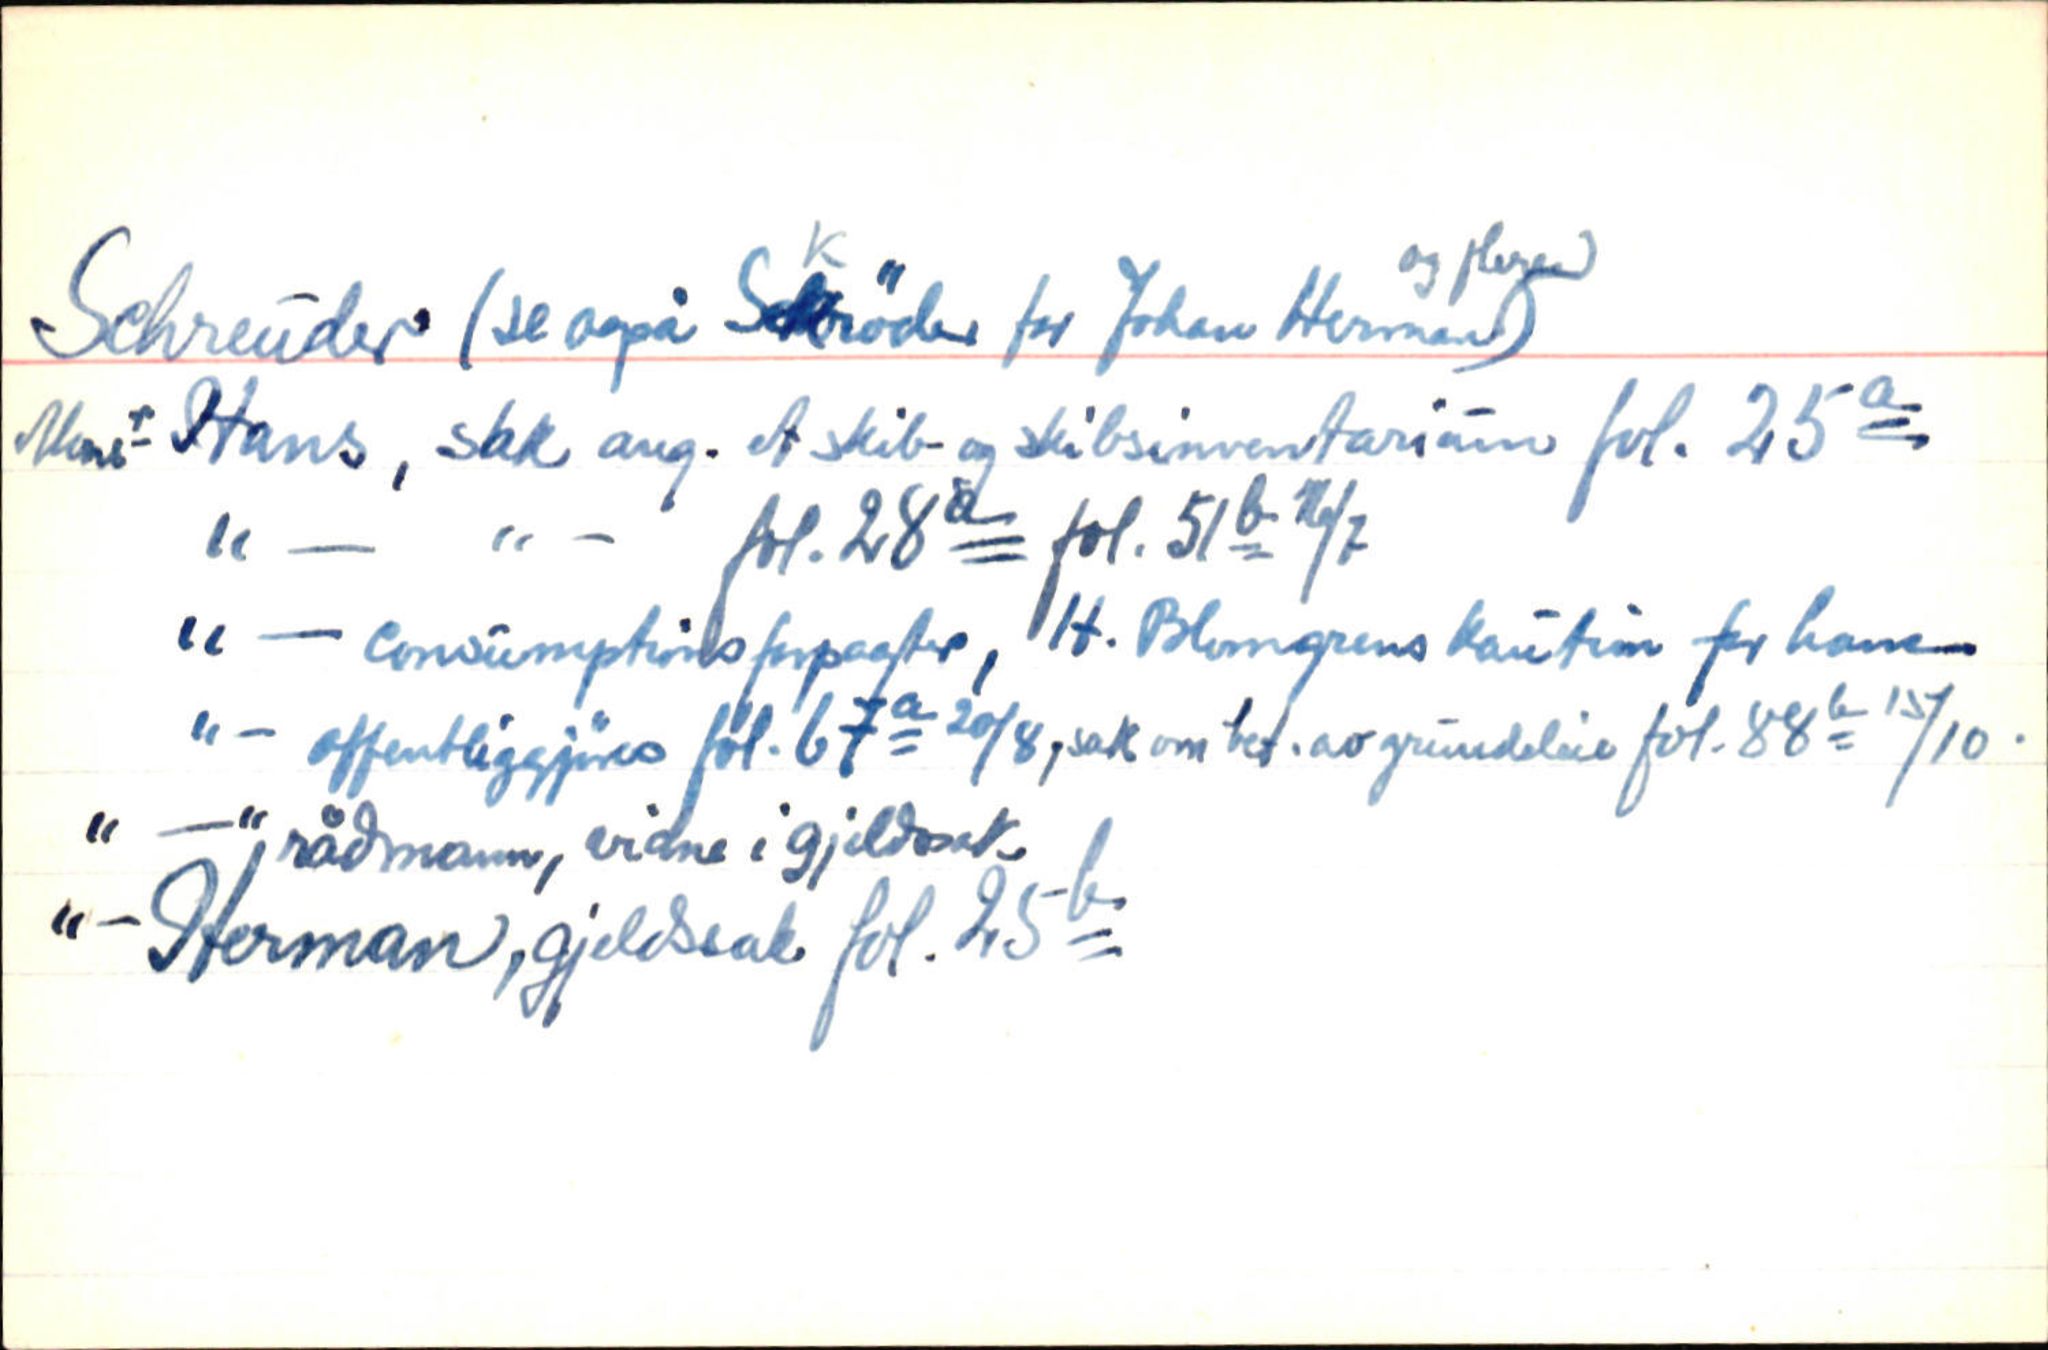 Schreuder (se også Skröder for Johan Herman og flere)
Mons.r Hans, sak ang. et skib- og skibsinventarium fol. 25a
" — " — fol. 28a fol. 51b /7
" — Consumptionsforpagter, H. Blomgrens kaution for ham
" — offentliggjöres fol. 67a 20/8, sak om bet. av grundleie fol. 88b 15/10.
" — ", rådmann, vidne i gjeldssak
" — Herman, gjeldssak fol. 25b